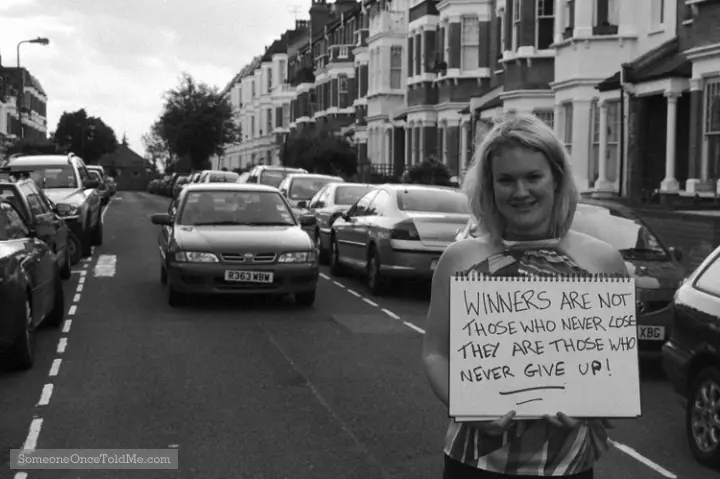 R363 WBM
WINNERS ARE NOT
THOSE WHO NEVER LOSE
THEY ARE THOSE WHO
NEVER GIVE UP!
XBG
SomeoneOnceToldMe.com